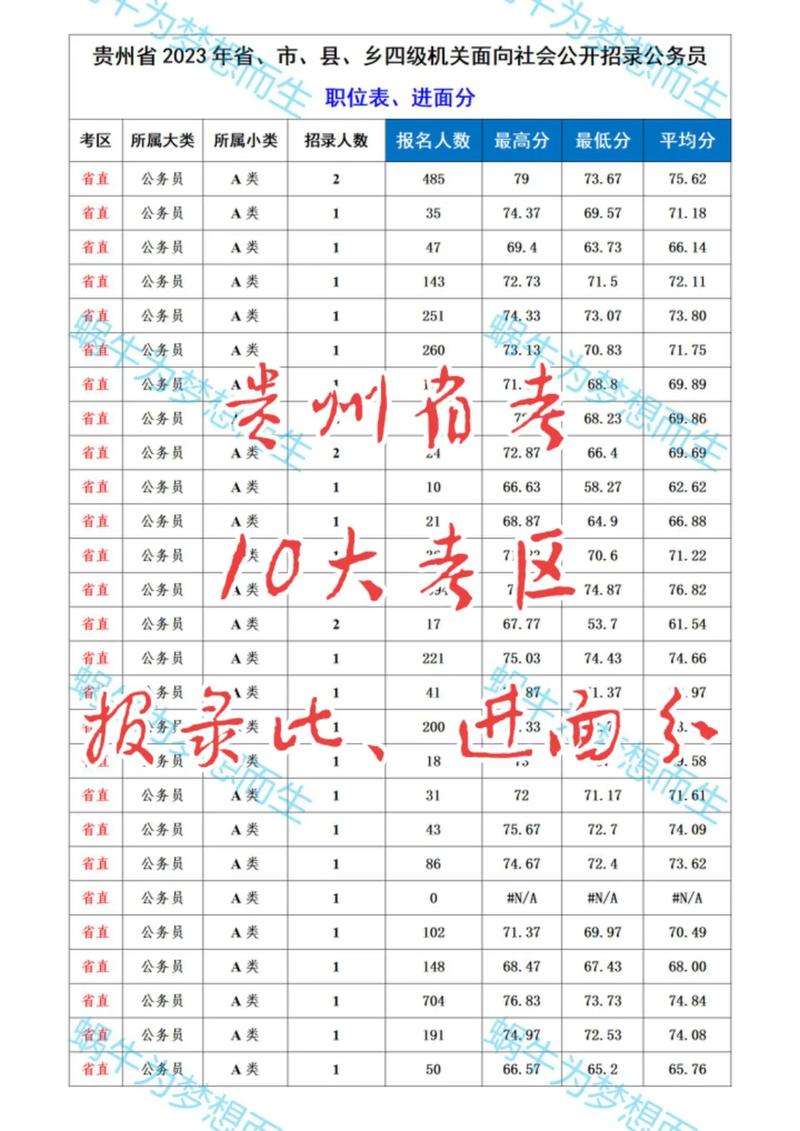 贵州省 2023 年省、市、县、乡四级机关面向社会公开招录公务员
职位表、进面分
考区 所属大类 所属小类 招录人数 报名人数 最高分 最低分 平均分
省直 公务员 A 类 2 485 79 73.67 75.62
省直 公务员 A 类 1 35 74.37 69.57 71.18
省直 公务员 A 类 1 47 69.4 63.73 66.14
省直 公务员 A 类 1 143 72.73 71.5 72.11
省直 公务员 A 类 1 251 74.33 73.07 73.80
省直 公务员 A 类 1 260 73.13 70.83 71.75
省直 公务员 A 68.8 69.89
省直 公务员 68.23 69.86
贵州省考
省直 公务员 A 类 2 24 72.87 66.4 69.69
省直 公务员 A 类 1 10 66.63 58.27 62.62
省直 公务员 A 类 1 21 68.87 64.9 66.88
省直 公务员 类 70.6 71.22
10大考区
省直 公务员 A 类 74.87 76.82
省直 公务员 A 类 2 17 67.77 53.7 61.54
省直 公务员 A 类 1 221 75.03 74.43 74.66
省直 公务员 A 类 1 41
公务员 类 1 200
报录比、进面分
公务员 A 类 1 18
省直 公务员 A 类 1 31 72 71.17 71.61
省直 公务员 A 类 1 43 75.67 72.7 74.09
省直 公务员 A 类 1 86 74.67 72.4 73.62
省直 公务员 A 类 1 0 #N/A #N/A #N/A
省直 公务员 A 类 1 102 71.37 69.97 70.49
省直 公务员 A 类 1 148 68.47 67.43 68.00
省直 公务员 A 类 1 704 76.83 73.73 74.84
省直 公务员 A 类 1 191 74.97 72.53 74.08
省直 公务员 A 类 1 50 66.57 65.2 65.76
蜗牛为梦想而生
蜗牛为梦想而生
蜗牛为梦想而生
蜗牛为梦想而生